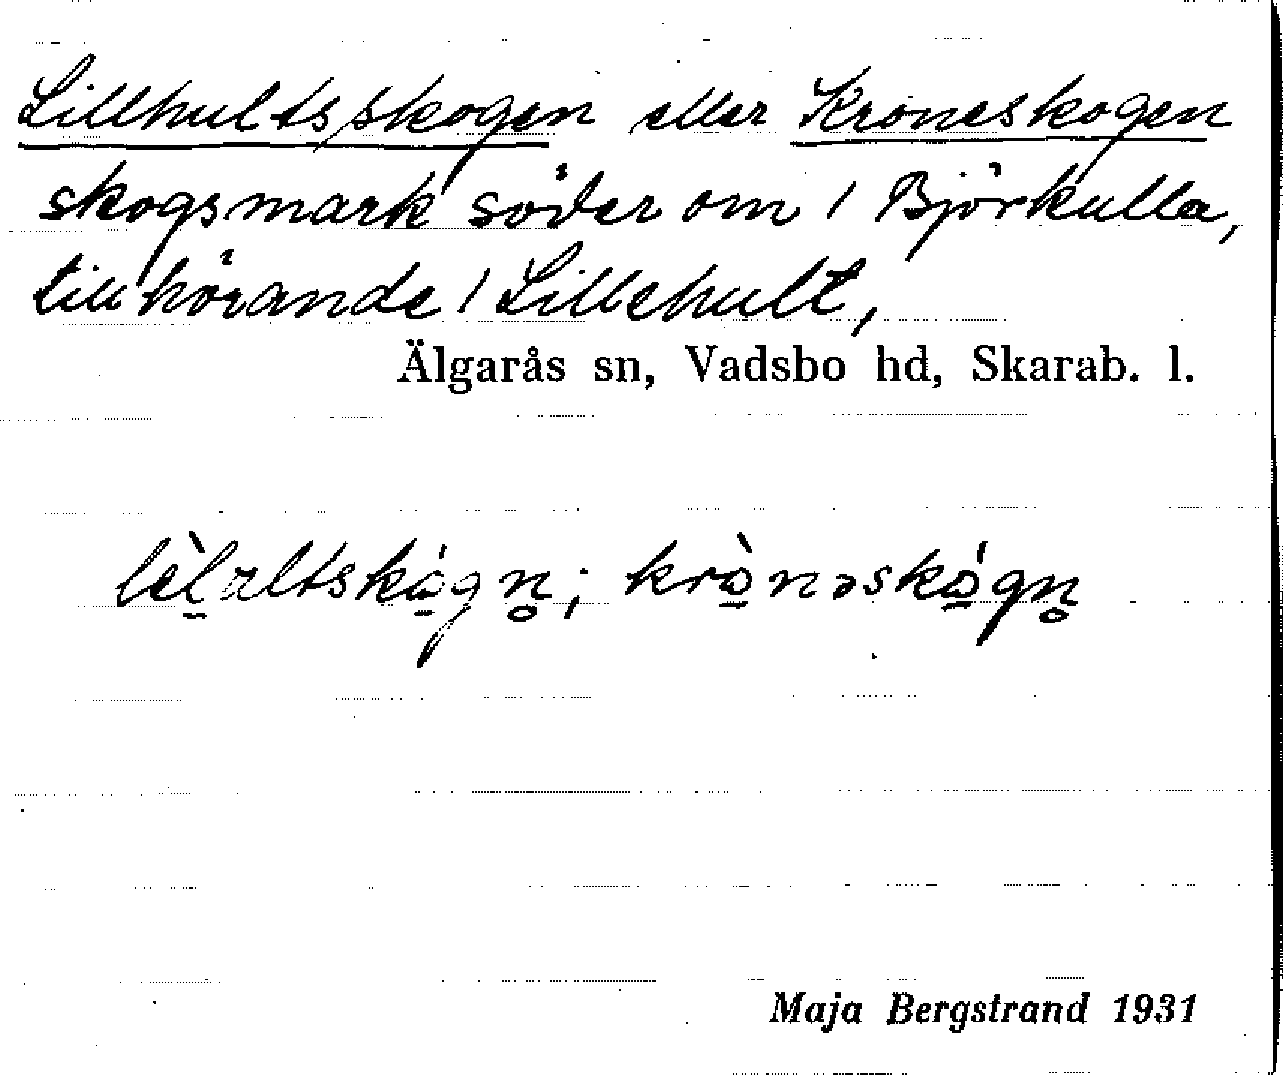 Lillhultsskogen eller Kroneskogen
skogsmark söder om 1 Björkulla,
tillhörande 1 Lillehult,
Älgarås sn, Vadsbo hd, Skarab. l.
lèl̠əltskó̠gn̥; krò̠nəskó̠gn̥
Maja Bergstrand 1931